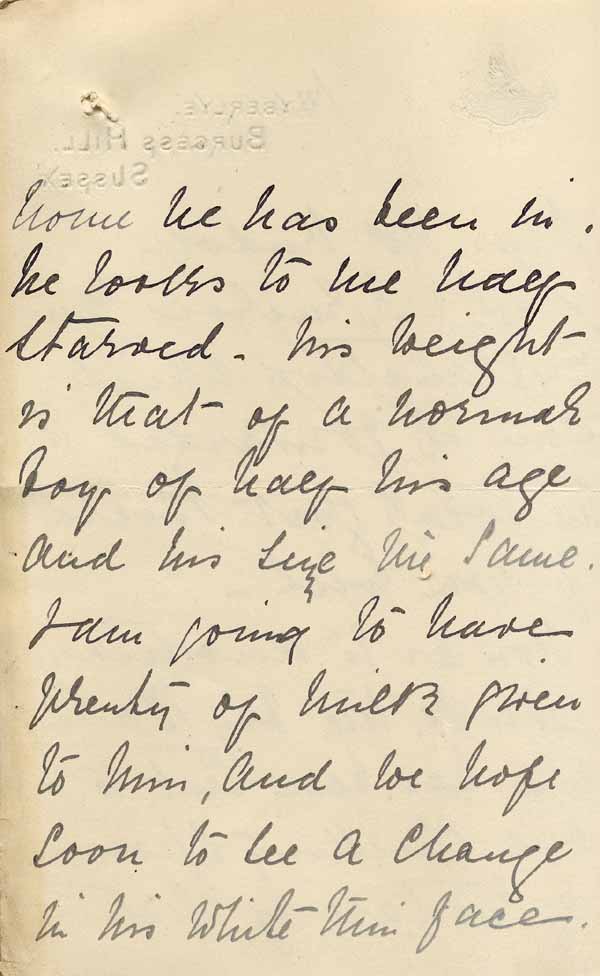 WYBERLYE.
BURGESS HILL.
SUSSEX
home he has been in.
he looks to me half
starved - his weight
is that of a normal
boy of half his age
and his size the same.
I am going to have
plenty of milk given
to him, and we hope
soon to see a change
in his white thin face.